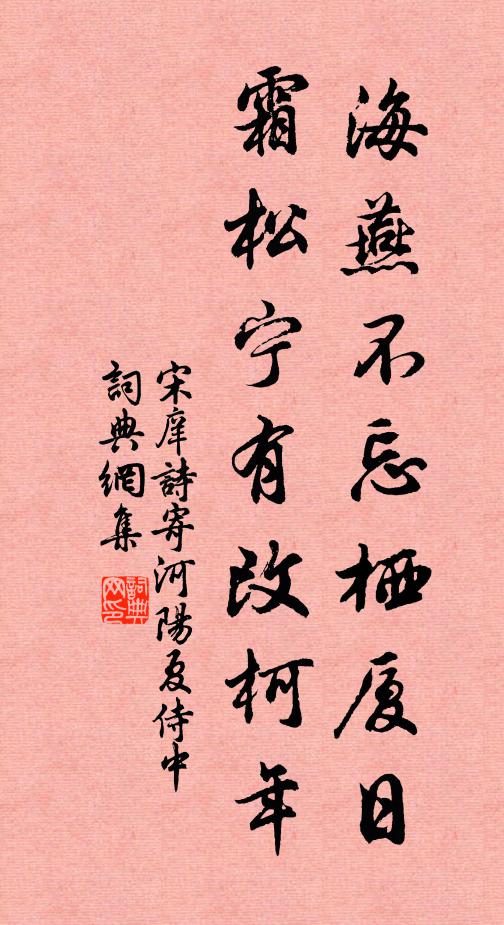 海燕不忘栖厦日
霜松宁有改柯年
宋庠詩寄河陽夏侍中
詞典網集
詞典网印